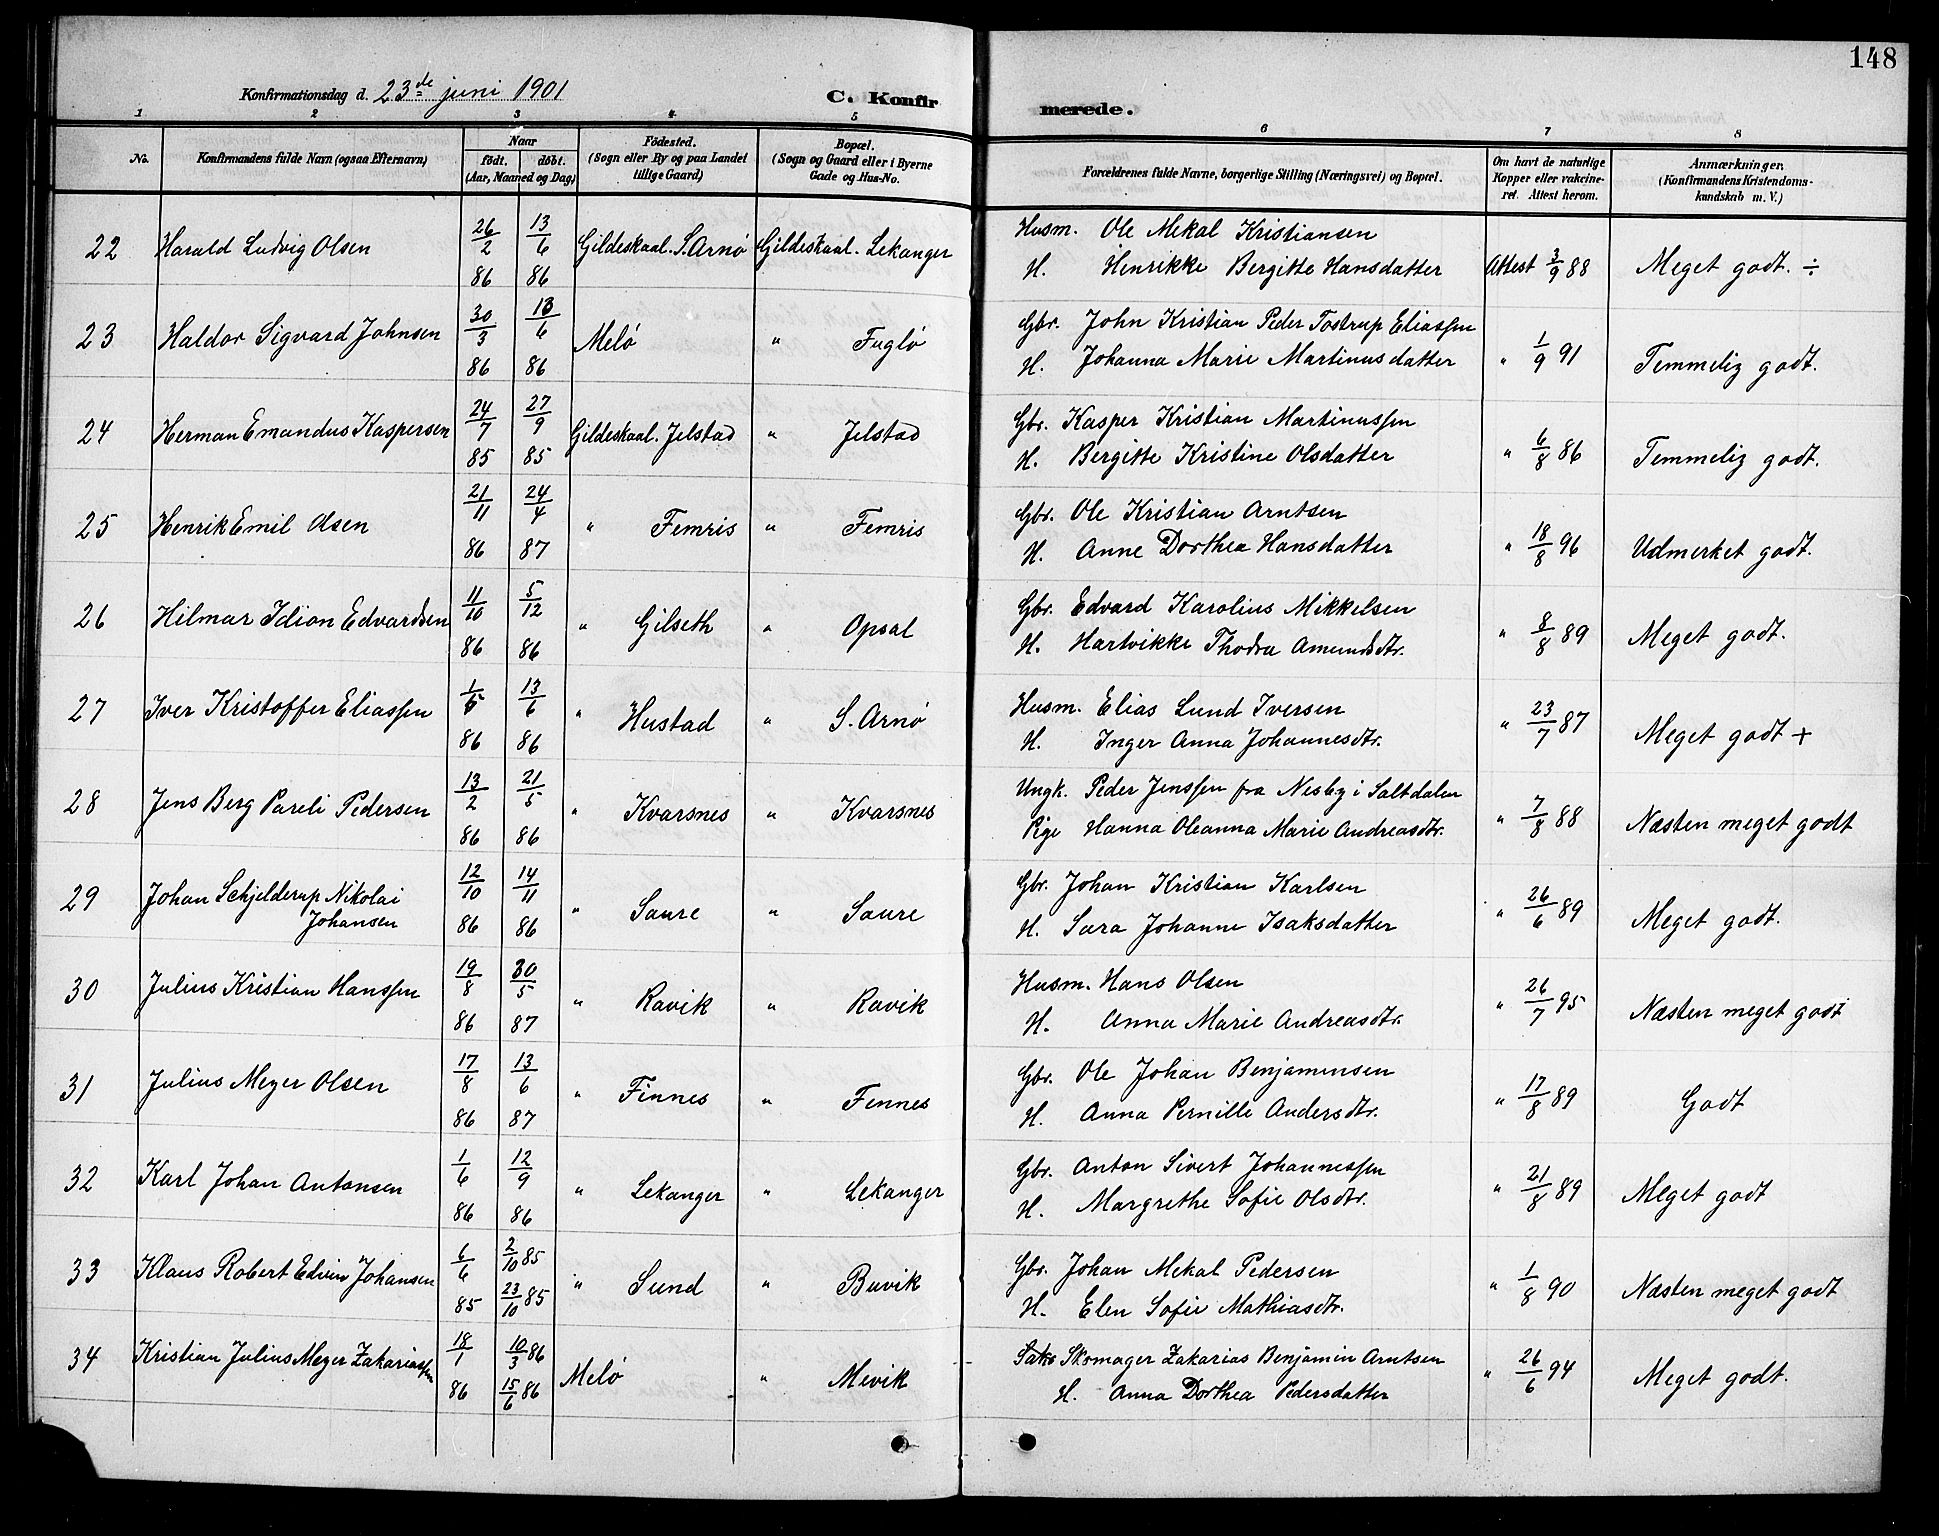 148
Konfirmationsdag d. 23de juni 1901
C. Konfir merede.
1 2 3 4 5 6 7 8
No.
Konfirmandens fulde Navn (ogsaa Efternavn)
Naar
født. døbt.
(Aar, Maaned og Dag)
Fødested.
(Sogn eller By og paa Landet
tillige Gaard)
Bopæl.
(Sogn og Gaard eller i Byerne
Gade og Hus-No.
Forældrenes fulde Navne, borgerlige Stilling (Næringsvei) og Bopæl.
Om havt de naturlige
Kopper eller vakcine-
ret. Attest herom.
Anmærkninger.
(Konfirmandens Kristendoms-
kundskab m. V.)
22 Harald Ludvig Olsen 26/2 86 13/6 86 Gildeskaal. S. Arnø Gildeskaal. Lekanger
Husm. Ole Mekal Kristiansen
H. Henrikke Bergitte Hansdatter Attest 3/9 88 Meget godt. ÷
23 Haldor Sigvard Johnsen 30/3 86 13/6 86 Melø " Fuglø
Gbr. John Kristian Peder Tostrup Eliassen
H. Johanna Marie Martinusdatter " 1/9 91 Temmelig godt.
24 Herman Emandus Kaspersen 24/7 85 27/9 85 Gildeskaal. Jelstad " Jelstad
Gbr. Kasper Kristian Martinussen
H. Bergitte Kristine Olsdatter " 6/8 86 Temmelig godt.
25 Henrik Emil Olsen 21/11 86 24/4 87 " Femris " Femris
Gbr. Ole Kristian Arntsen
H. Anne Dorthea Hansdatter " 18/8 96 Udmerket godt.
26 Hilmar Idion Edvardsen 11/10 86 5/12 86 " Gilseth " Opsal
Gbr. Edvard Karolius Mikkelsen
H. Hartvikke Thodra Amundsdtr. " 8/8 89 Meget godt.
27 Iver Kristoffer Eliassen 1/5 86 13/6 86 " Hustad " S. Arnø
Husm. Elias Lund Iversen
H. Inger Anna Johannesdtr. " 23/7 87 Meget godt +
28 Jens Berg Pareli Pedersen 13/2 86 21/5 86 " Kvarsnes " Kvarsnes
Ungk. Peder Jenssen fra Nesby i Saltdalen
Pige Hanna Oleanna Marie Andreasdtr. " 7/8 88 Næsten meget godt
29 Johan Schjelderup Nikolai
Johansen 12/10 86 14/11 86 " Saure " Saure
Gbr. Johan Kristian Karlsen
H. Sara Johanne Isaksdatter " 26/6 89 Meget godt.
30 Julius Kristian Hanssen 19/8 86 30/5 87 " Ravik " Ravik
Husm. Hans Olsen
H. Anna Marie Andreasdtr. " 26/7 95 Næsten meget godt
31 Julius Meyer Olsen 17/8 86 13/6 87 " Finnes " Finnes
Gbr. Ole Johan Benjaminsen
H. Anna Pernille Andersdtr. " 17/8 89 Godt
32 Karl Johan Antonsen 1/6 86 12/9 86 " Lekanger " Lekanger
Gbr. Anton Sivert Johannessen
H. Margrethe Sofie Olsdtr. " 21/8 89 Meget godt
33 Klaus Robert Edvin Johansen 6/6 85 2/10 85 23/10 85 " Sund " Buvik
Gbr. Johan Mekal Pedersen
H. Elen Sofie Mathiasdtr. " 1/8 90 Næsten meget godt
34 Kristian Julius Meyer Zakariassen 18/1 86 10/3 86 15/6 86 Melø " Mevik
Skomager Zakarias Benjamin Arntsen
H. Anna Dorthea Pedersdatter " 26/6 94 Meget godt.